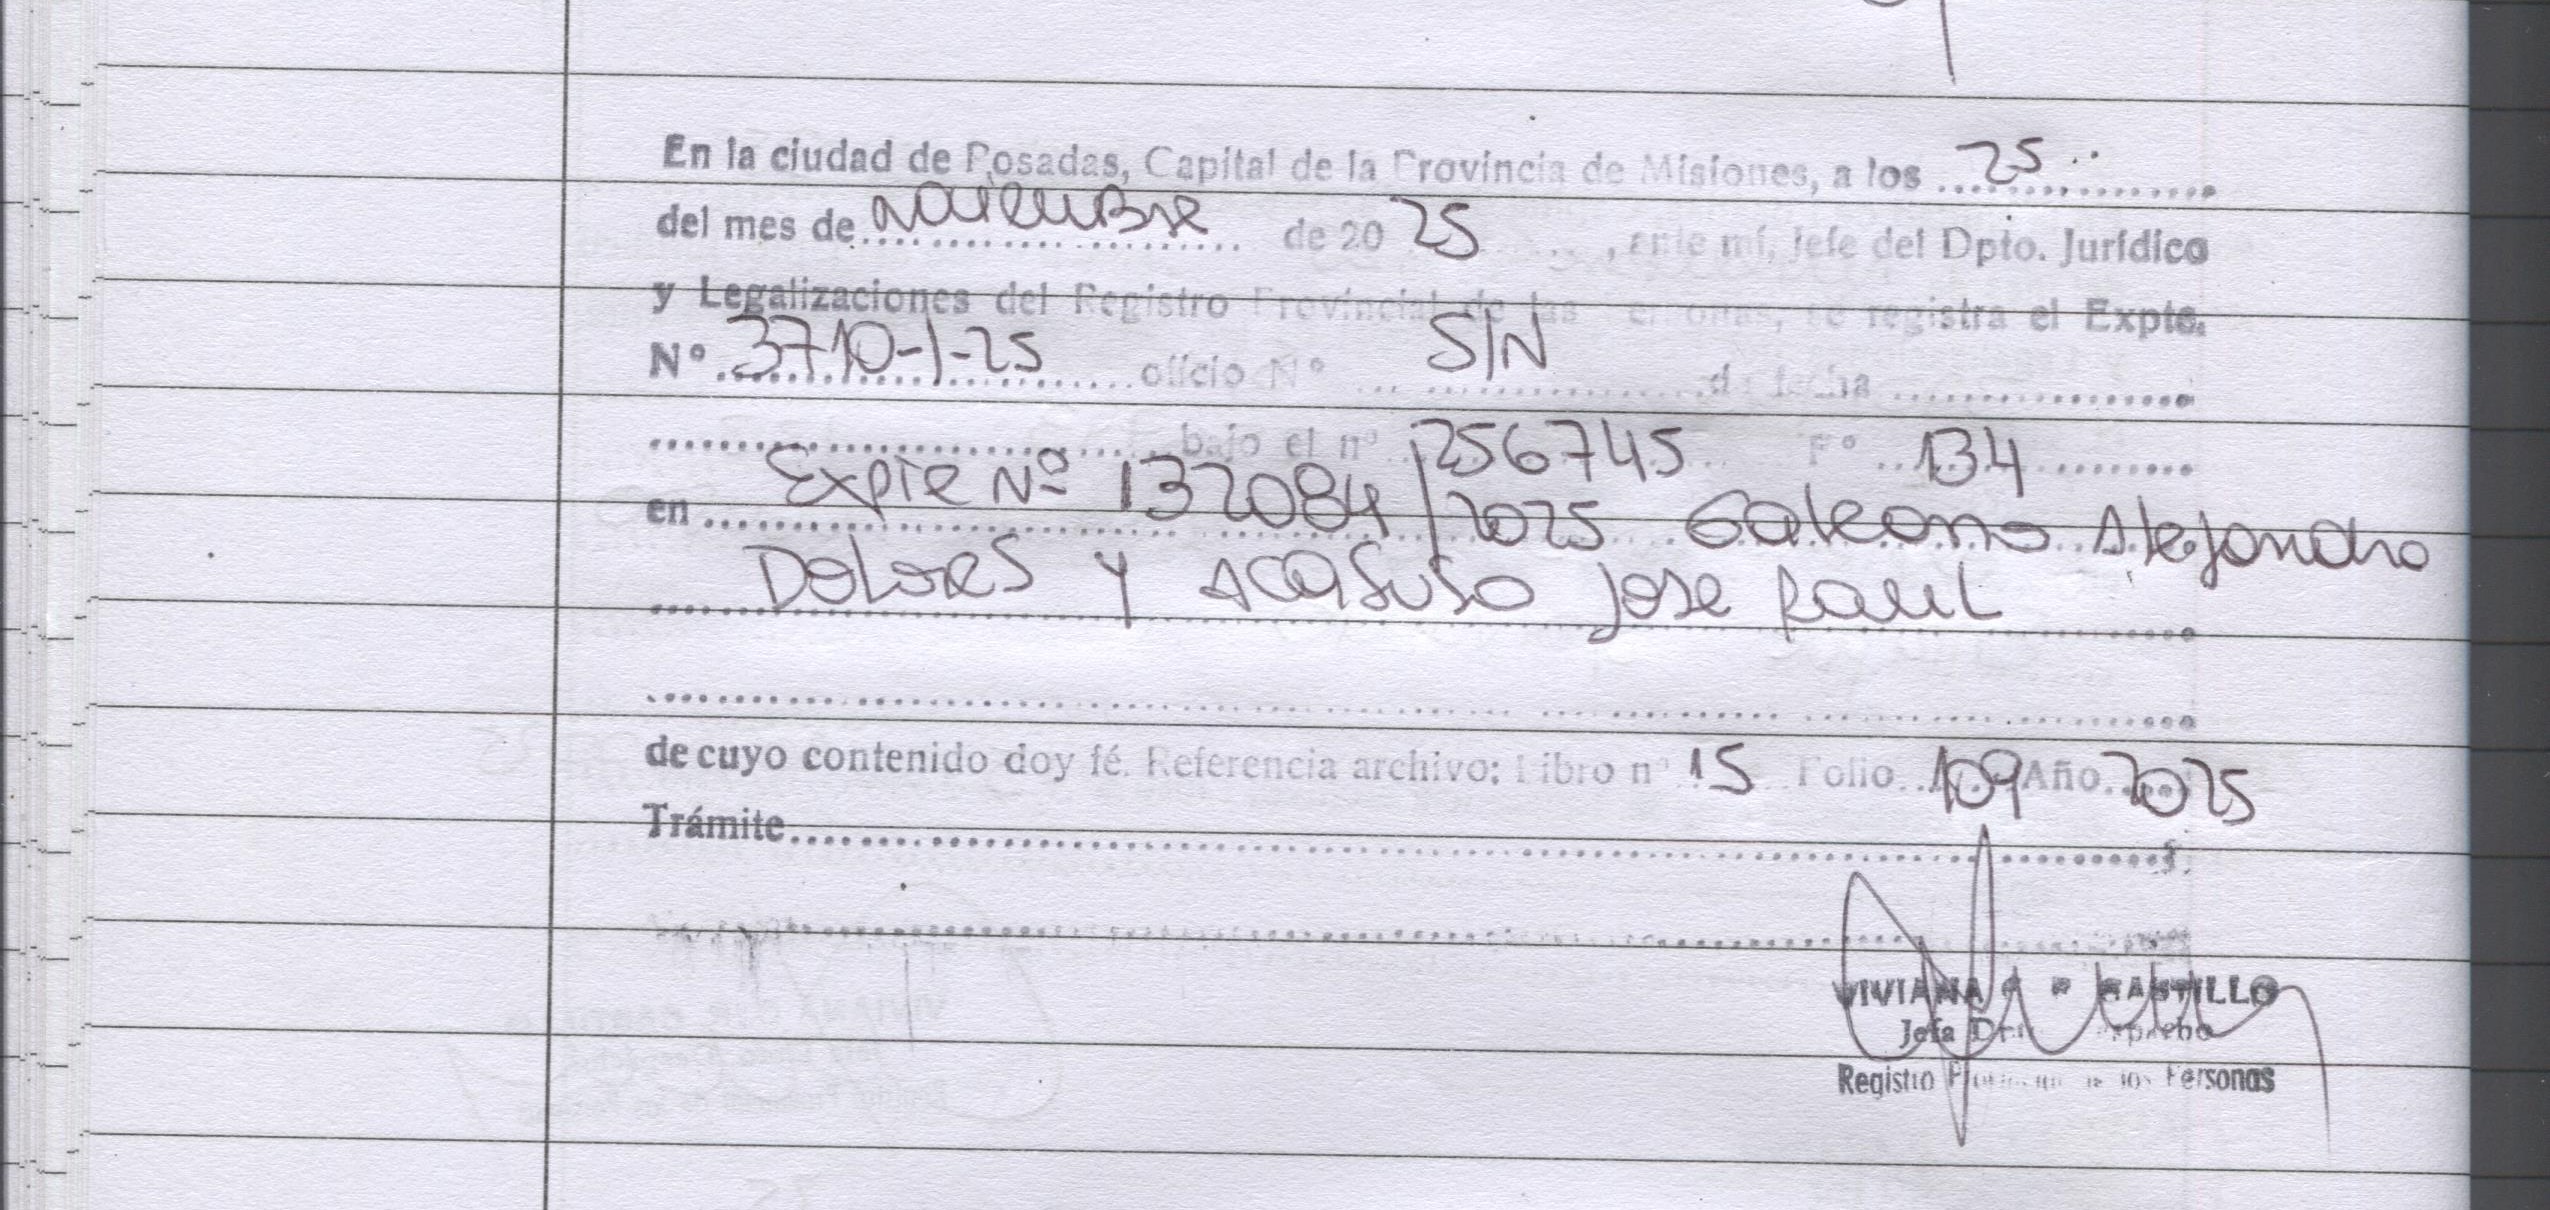 En la ciudad de Posadas, Capital de la Provincia de Misiones, a los 25
del mes de noviembre de 20 25, ante mí, Jefe del Dpto. Jurídico
y Legalizaciones del Registro Provincial de las Personas, se registra el Expte.
Nº 3710-1-25 oficio Nº S/N de fecha
bajo el nº 256745 Fº 134
en Expte Nº 132084/2025 Galeano Alejandro
Dolores y Acasuso Jose Raul
de cuyo contenido doy fé. Referencia archivo: Libro nº 15 Folio 109 Año 2025
Trámite
VIVIANA CASTILLO
Jefa Despacho
Registro Provincial de las Personas